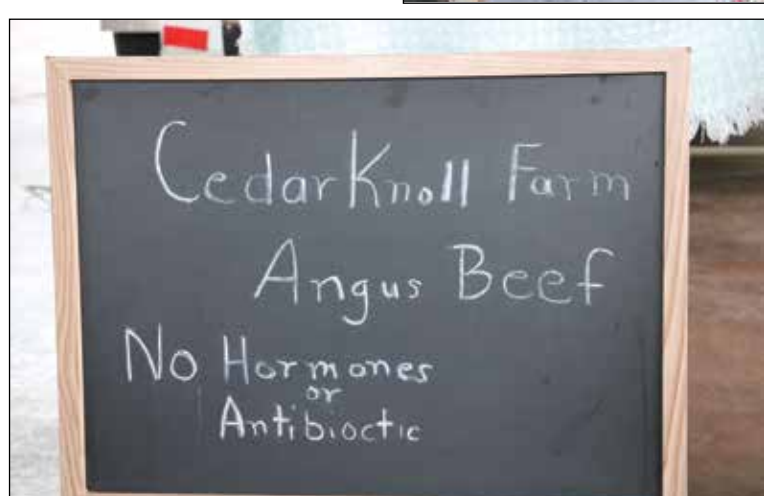 Cedar Knoll Farm
Angus Beef
No Hormones
or
Antibioctic